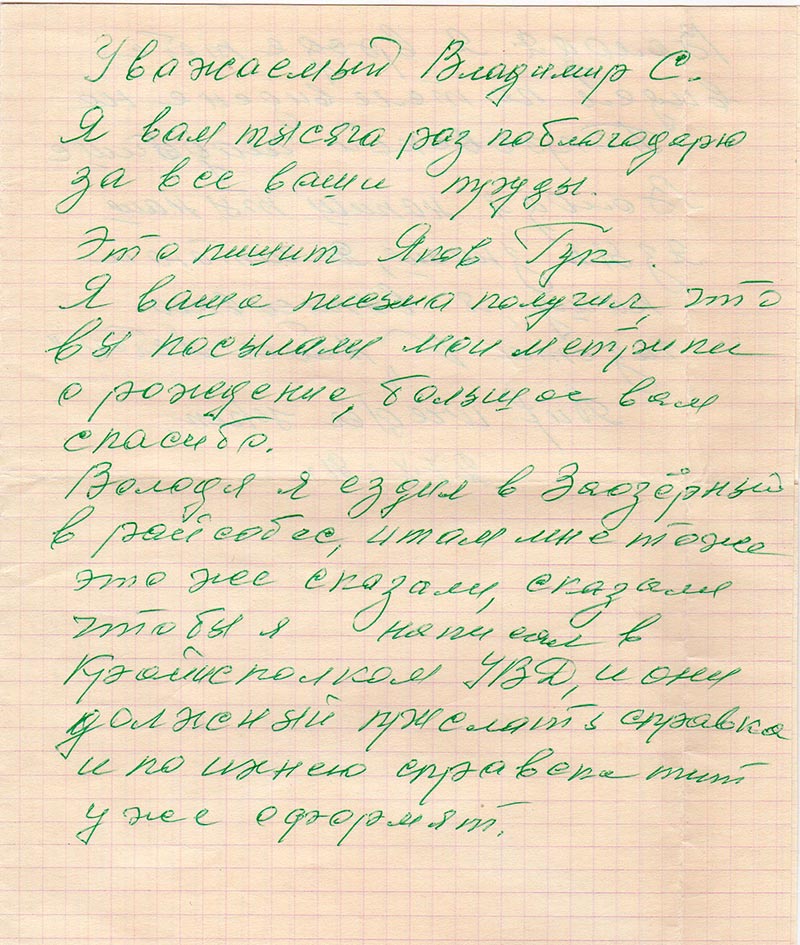 Уважаемый Владимир С.
Я вам тысяга раз поблагодарю
за все ваши труды.
Это пишит Яков Гук.
Я ваща письма получил, что
вы посылали мои метрики
о рождение, большое вам
спасибо.
Володя я ездил в Заозёрный
в райсобес, и там мне тоже
это же сказали, сказали
чтобы я написал в
Крайисполком УВД, и они
должный прислать справка
и по ихнею справепа тит
уже оформят.